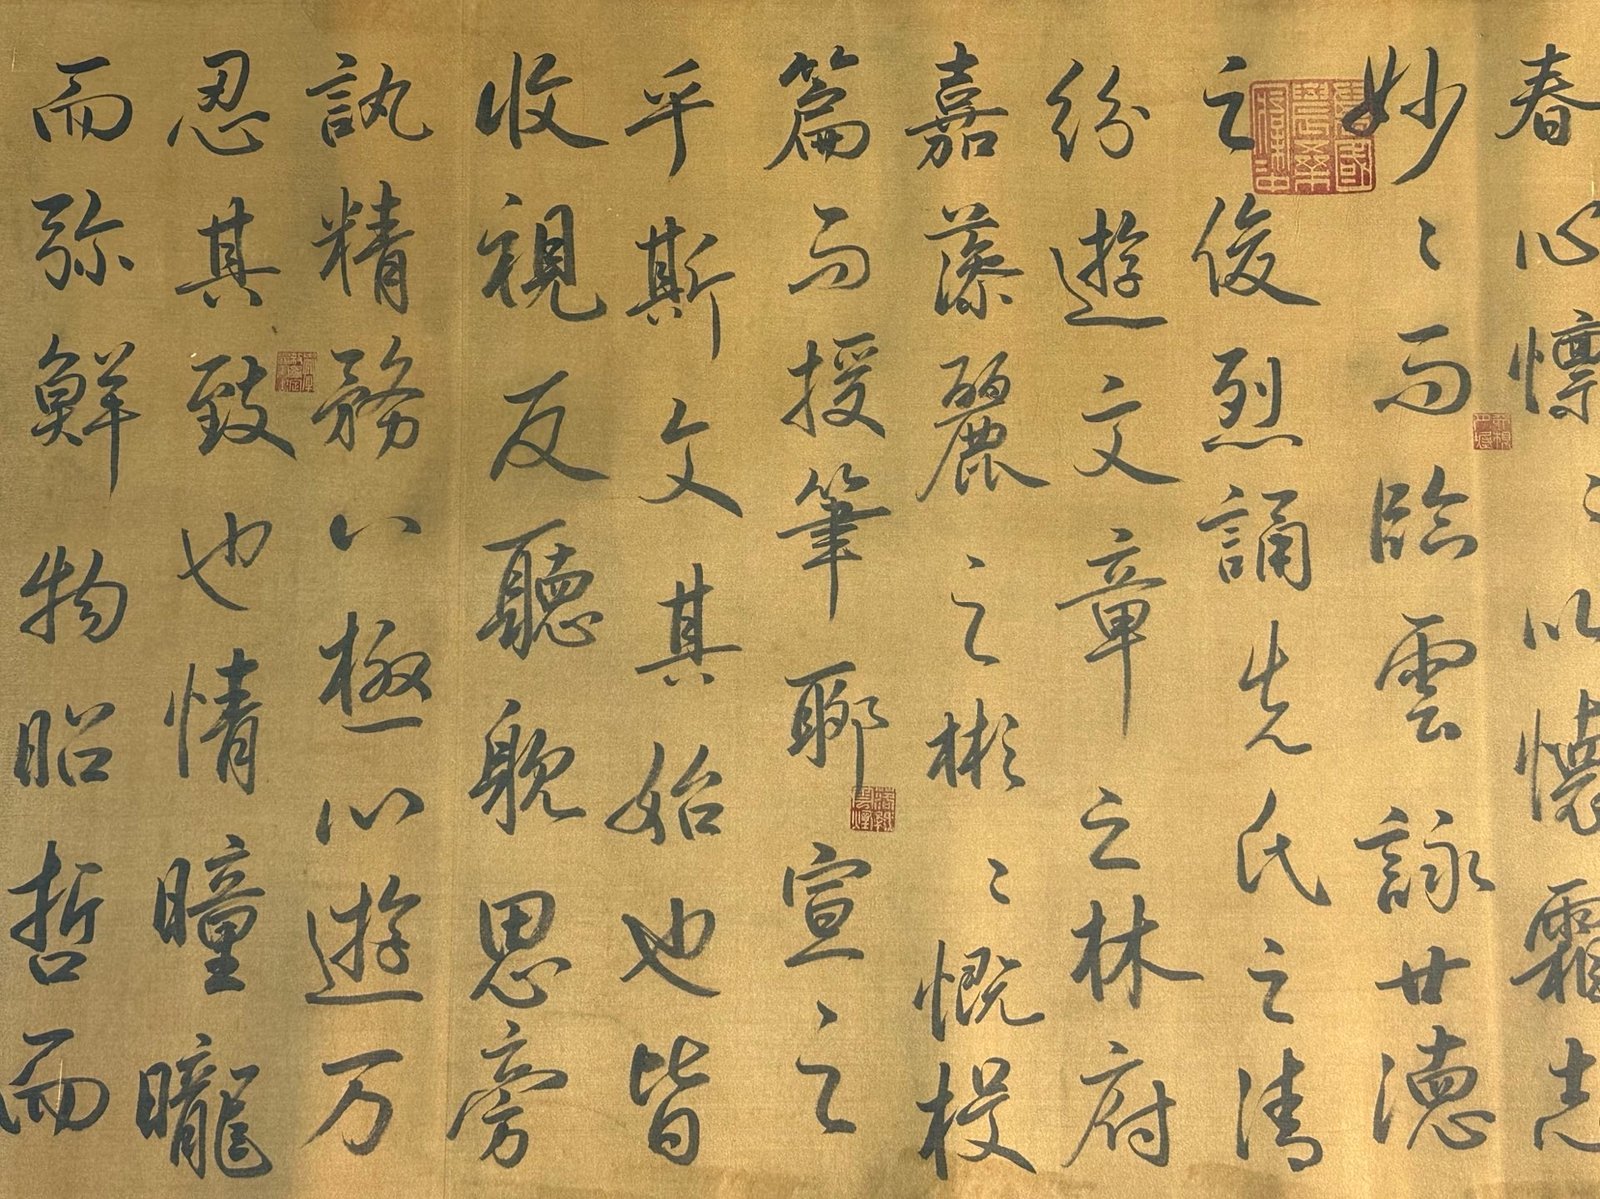 春心懔〻以懷霜志
妙〻而臨雲詠世德
之俊烈誦先氏之清
紛遊文章之林府
嘉藻麗之彬〻慨投
篇而授筆聊宣之
乎斯文其始也皆
收視反聽躭思旁
訊精務八極心遊万
忍其致也情曈曨
而弥鮮物昭哲而